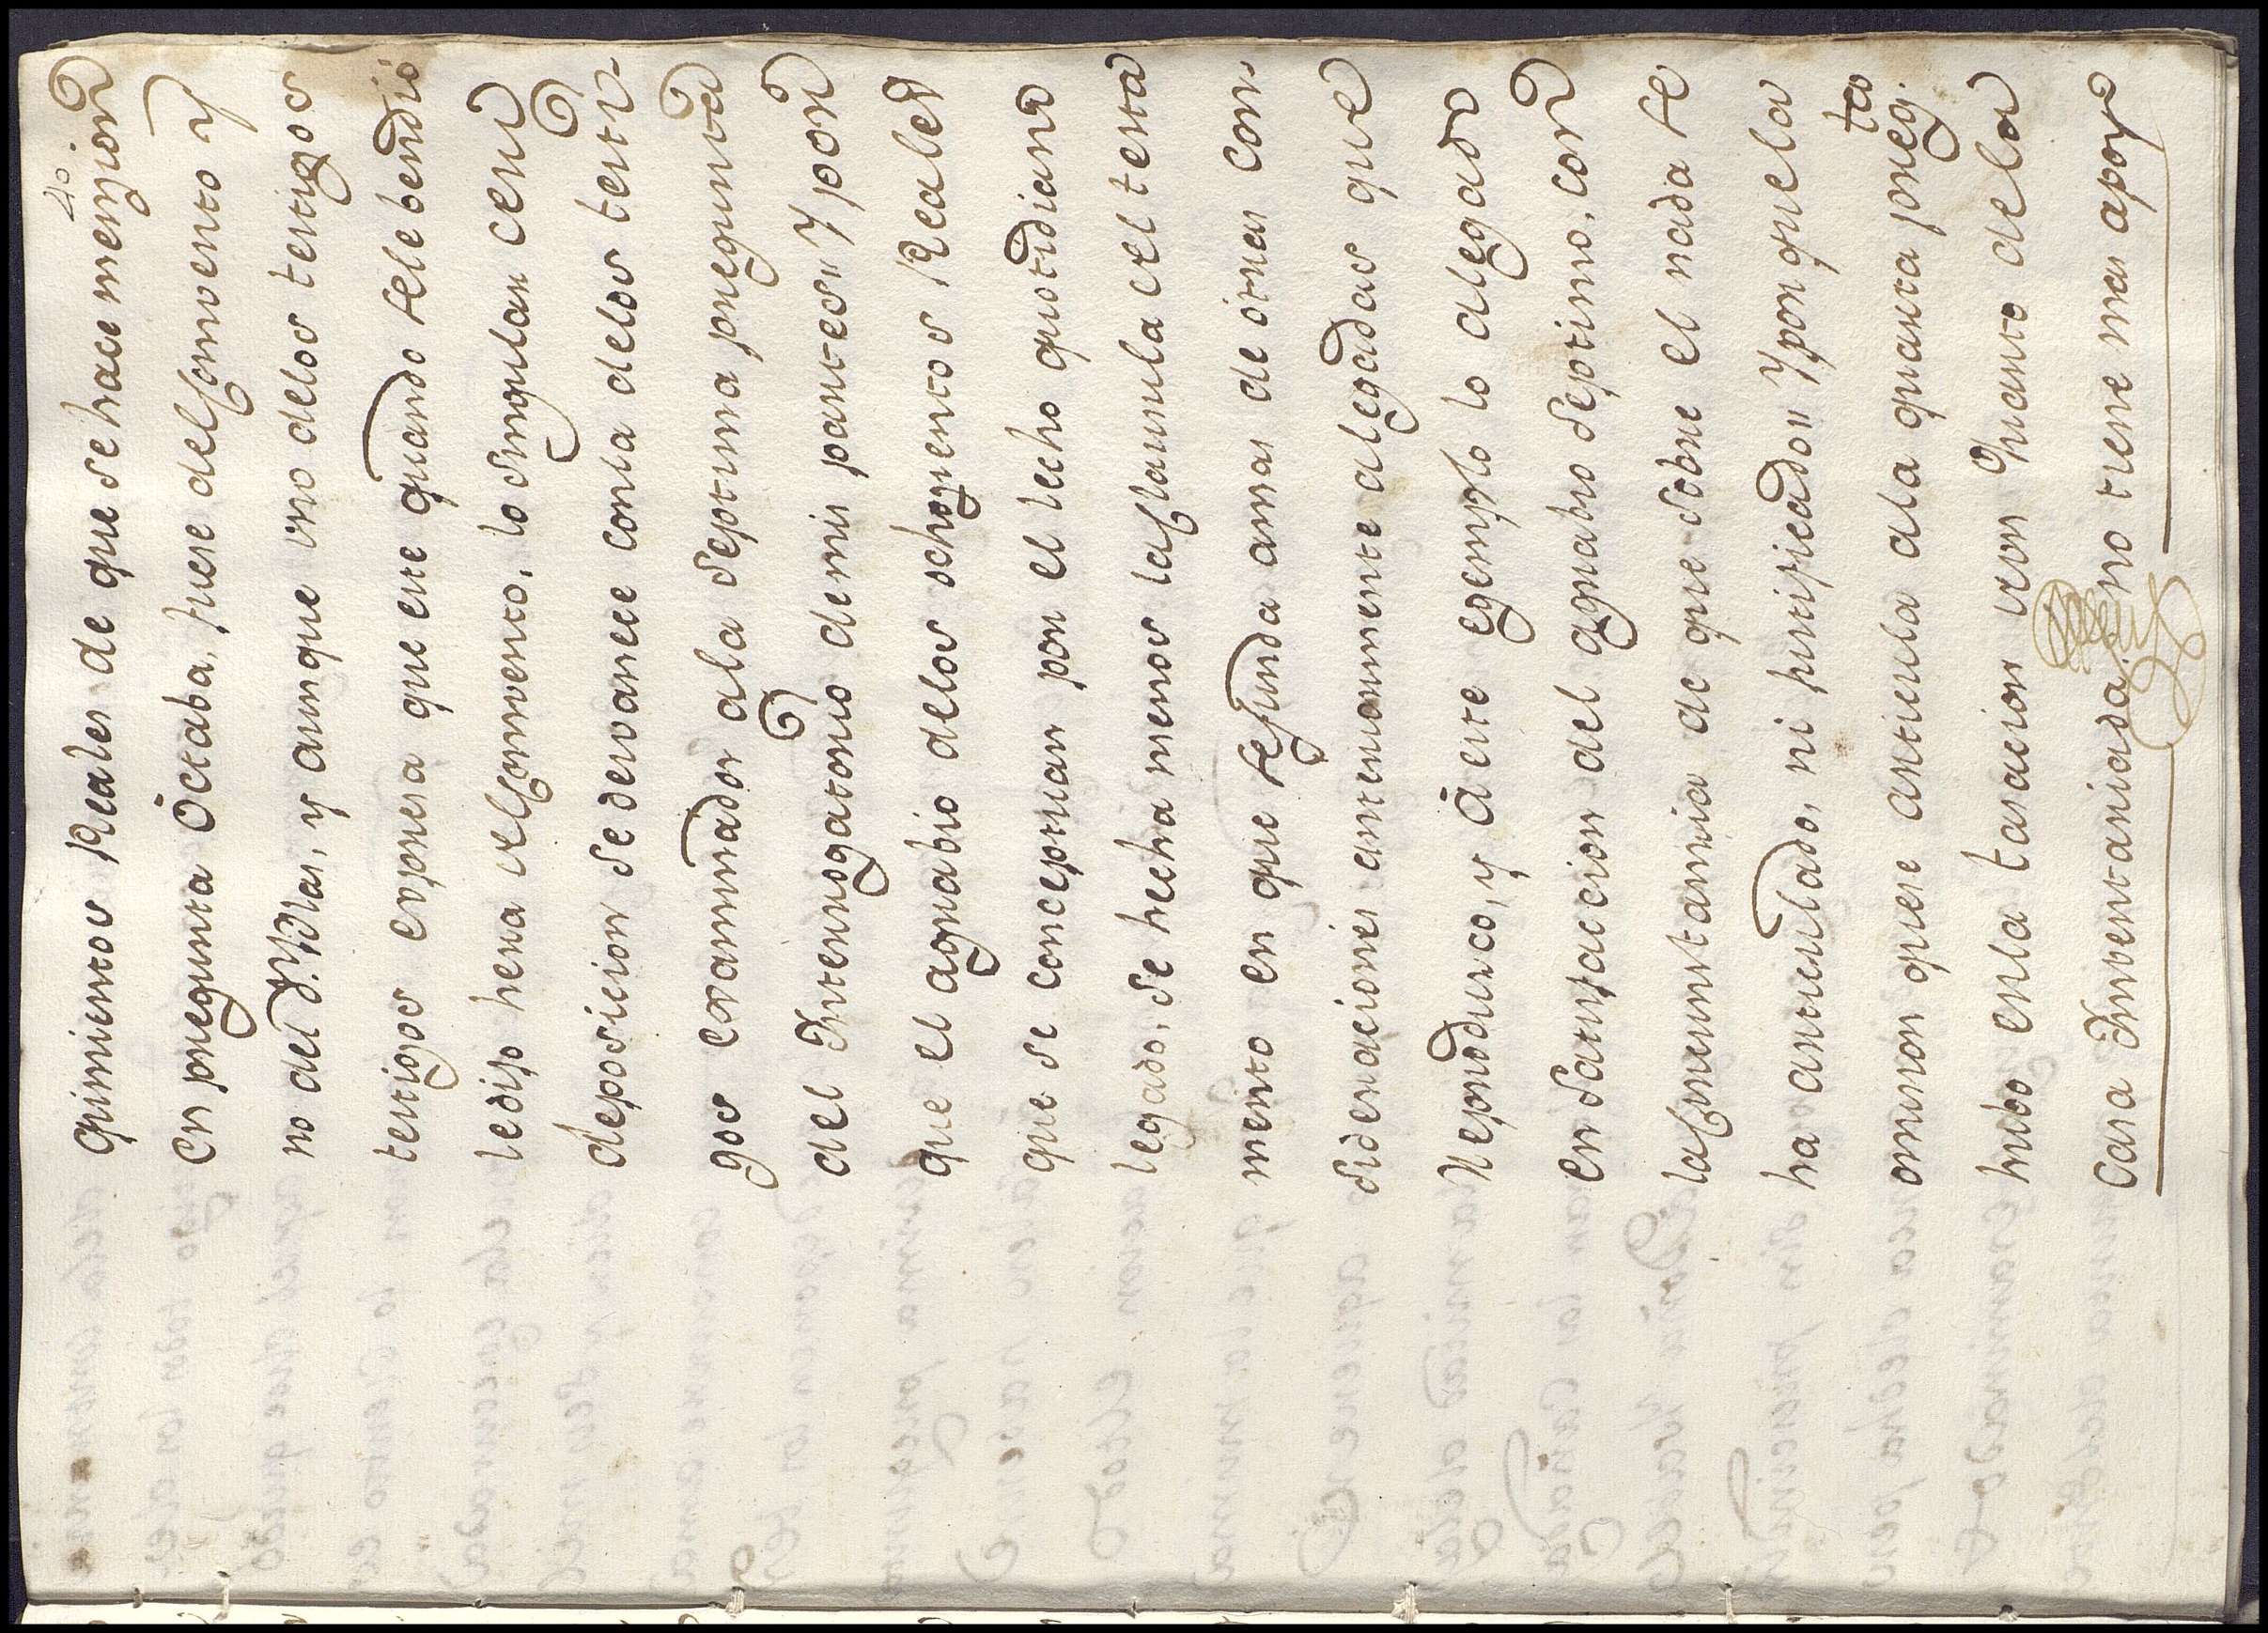 40.
quinientos Reales de que se hace menzion
en pregunta Octaba, fuese del Convento y
no del S.r Blas, y aunque uno delos testigos
testigos expresa que este quando sele bendio
ledijo hera del Convento, lo singular cesu
deposicion se desvanece conla delos testi-
gos examinados ala septima pregunta
del Interrogatorio demis partes,, y por
que el agrabio delos ochozientos Reales
que se conceptuan por el lecho quotidiano
legado, se hecha menos la Clausula del testa
mento en que sefunda amas de otras con
sideraciones anteriormente alegadas que
reproduzco, y a este egemplo lo alegado
en satisfaccion del agrabio septimo, con
la Cincunstancia de que sobre el nada se
ha articulado, ni justificado,, y por que la
omision que se articula ala quarta preg.ta
hubo enla tasacion de un quarto de la
Casa Imbentariada, no tiene mas apoyo